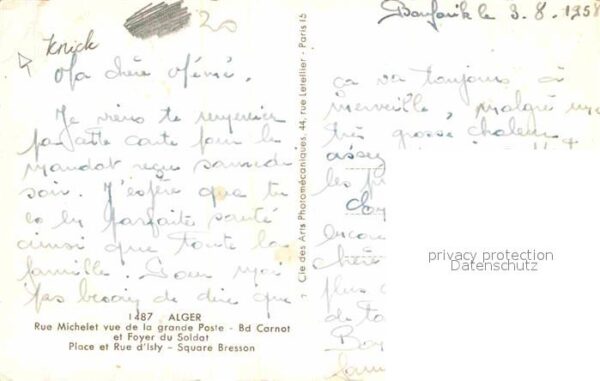 20
Knick
Boufarik le 3.8.1958
Ma chère Mémé.
Je viens te remercier
par cette carte pour le
mandat reçu samedi
soir. J'espère que tu
es en parfaite santé
ainsi que toute la
famille. Pour moi
pas besoin de dire que
ça va toujours à
merveille malgré une
très grosse chaleur
assez
les
encore
chère
plus
de
Cie des Arts Photomécaniques, 44, rue Letellier - Paris 15
1487 ALGER
Rue Michelet vue de la grande Poste - Bd Carnot
et Foyer du Soldat
Place et Rue d'Isly - Square Bresson
privacy protection
Datenschutz